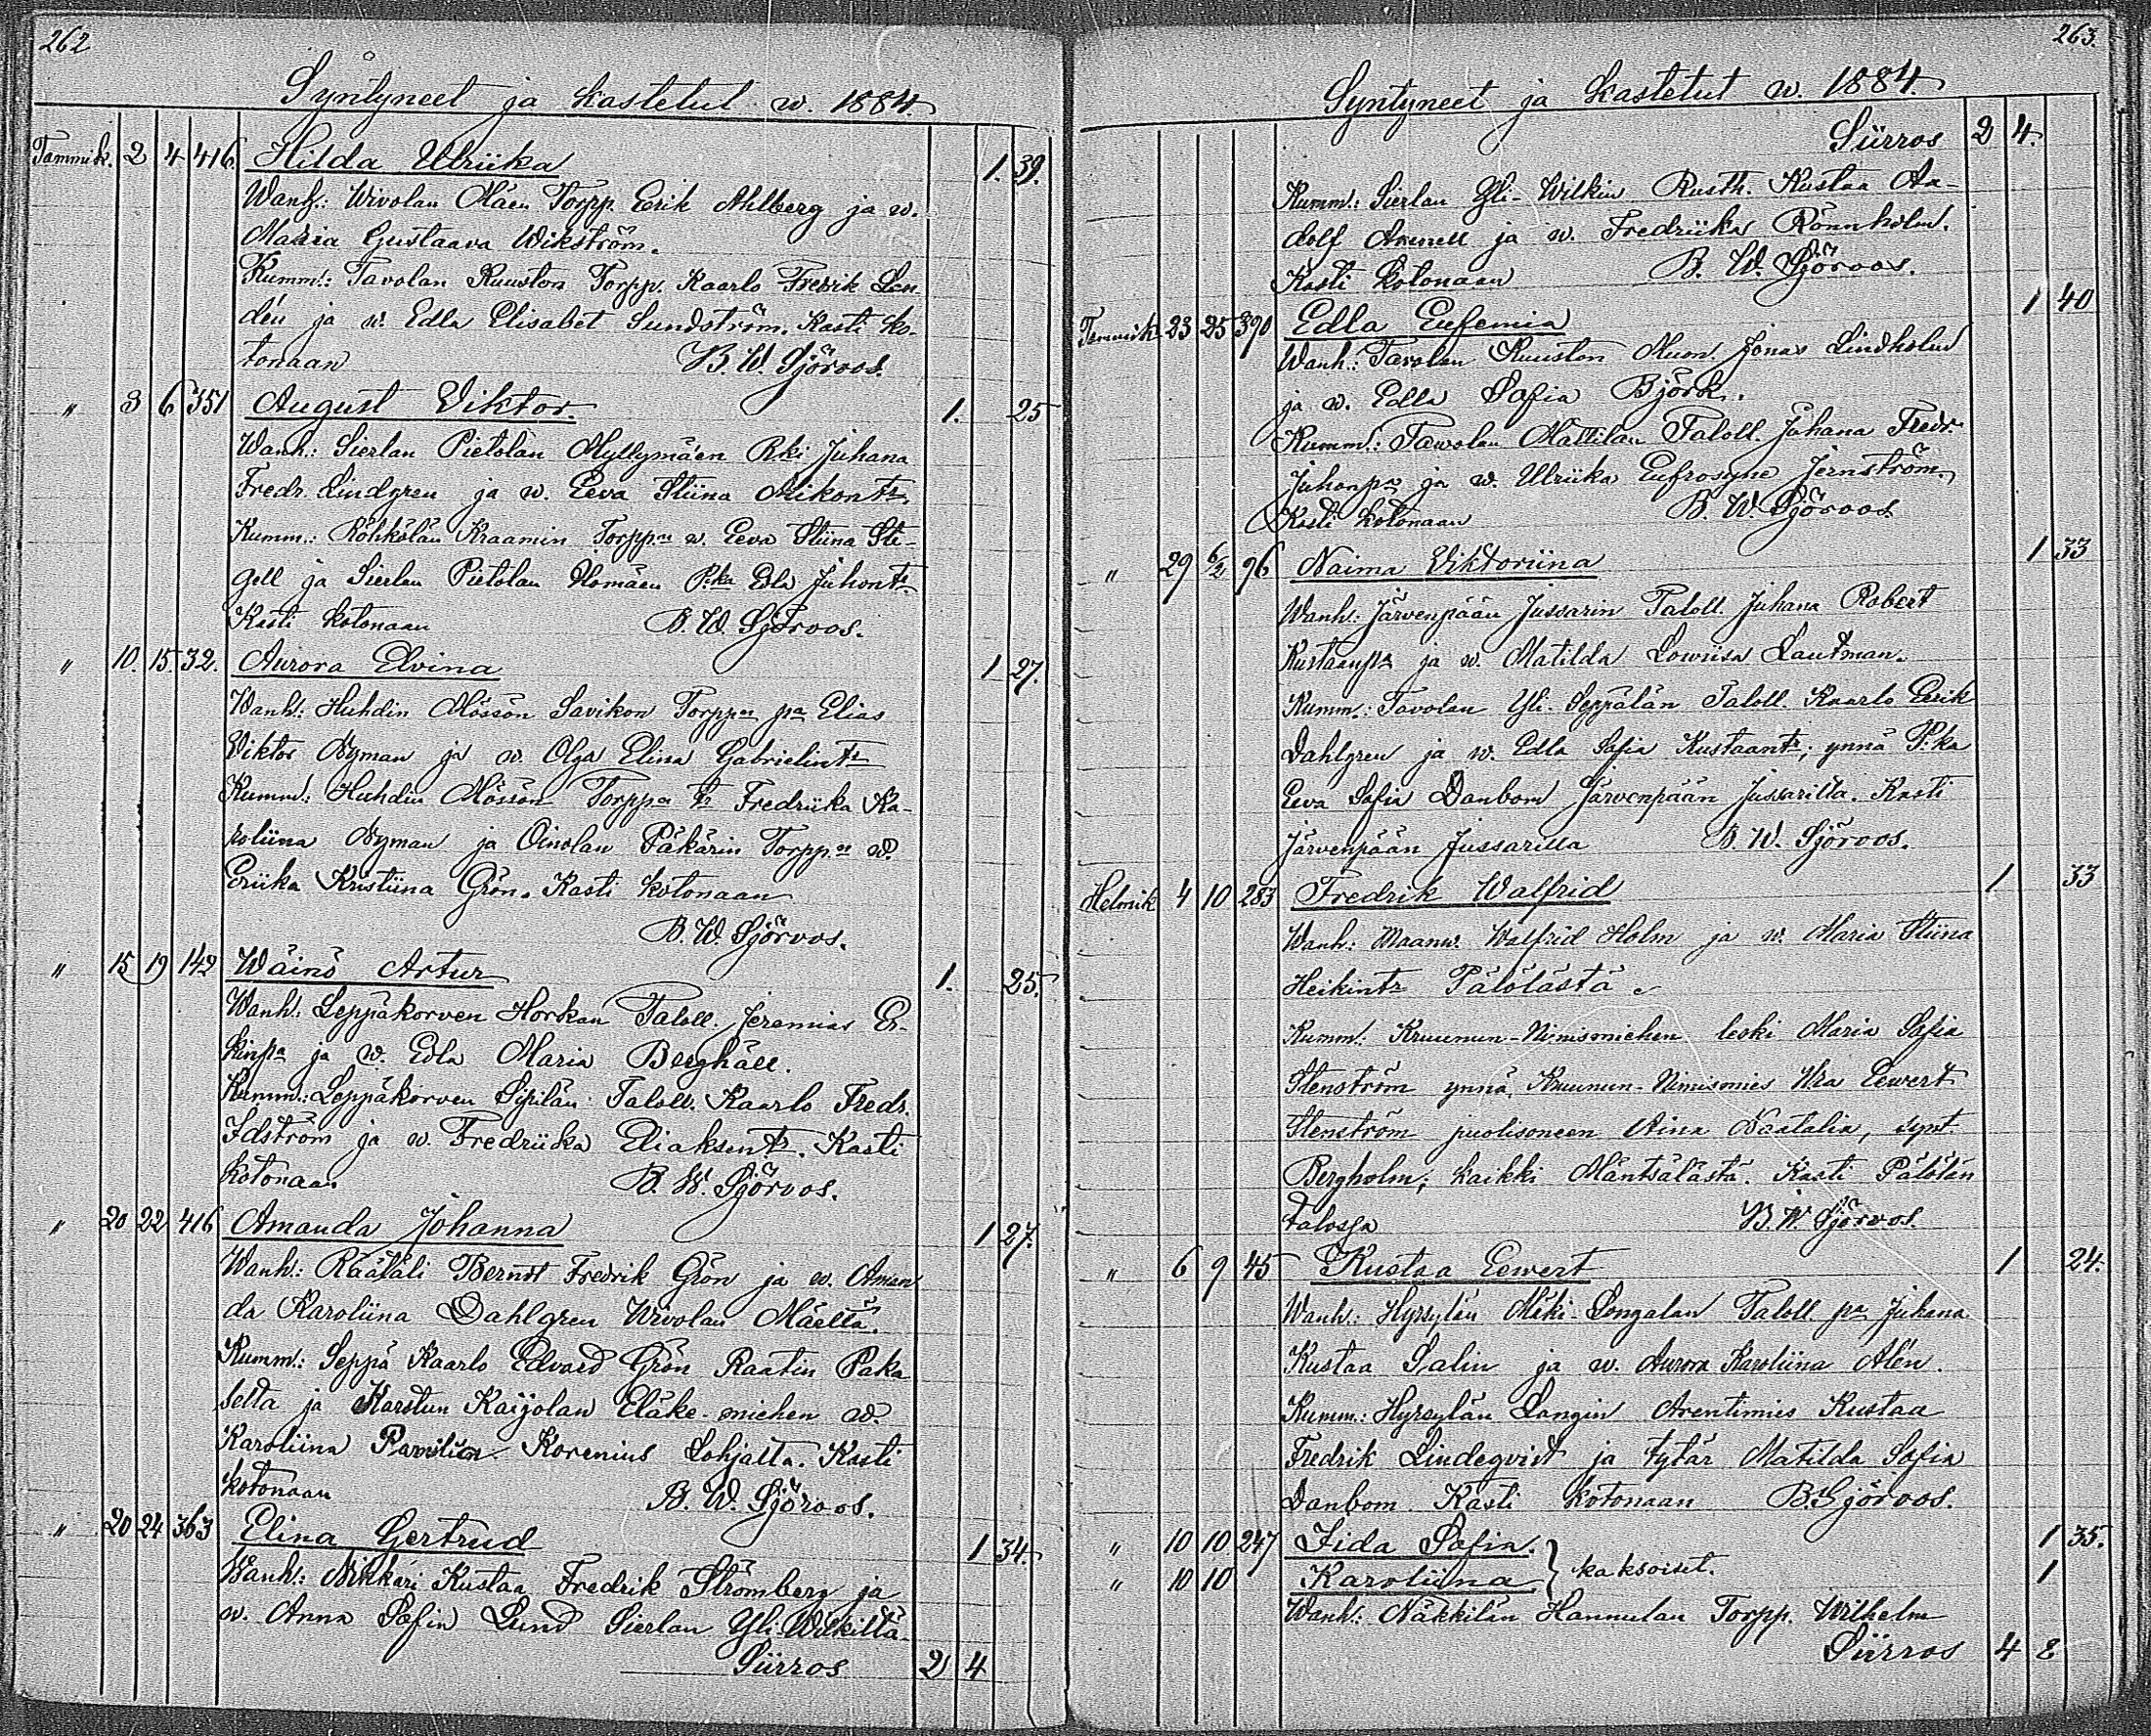 262
Syntyneet ja kastetut w. 1884.
Tammik. 2 4 416. Hilda Ulriika 1. 39.
Wanh.: Wivolan Mäen Torpp. Eerik Ahlberg ja w.
Maria Gustaava Wikström.
Kumm.: Tavolan Ruuston Torpp. Kaarlo Fredrik Lin
dén ja w. Edla Elisabet Sundström. Kasti ko-
tonaan B. W. Sjöroos.
" 3 6 351 August Viktor. 1. 25
Wanh.: Sierlan Pietolan Myllymäen Rki Juhana
Fredr. Lindgren ja w. Eeva Stiina Mikontr.
Kumm.: Röhkölän Kraamin Torppn w. Eeva Stiina Ste-
gell ja Sierlan Pietolan Pka Edla Juhontr.
Kasti kotonaan B. W. Sjöroos.
" 10. 15. 32. Aurora Elvina 1 27.
Wanh.: Huhdin Mössön Savikon Torppn pa Elias
Viktor Nyman ja w. Olga Elina Gabrielintr
Kumm.: Huhdin Mössön Torppn tr Fredriika Ka-
roliina Nyman ja Oinolan Päkärin Torppn w.
Eriika Kristiina Grön. Kasti kotonaan
B. W. Sjöroos.
" 15 19 142 Wäinö Artur 1. 25.
Wanh. Leppäkorven Horkan Taloll. Jeremias Er-
kinpa ja w. Edla Maria Berghäll.
Kumm.: Leppäkorven Sipilän Taloll. Kaarlo Fredr.
Idström ja w. Fredriika Eliaksentr. Kasti
kotonaan B. W. Sjöroos.
" 20 22 416 Amanda Johanna 1 27.
Wanh.: Räätäli Berndt Fredrik Grön ja w. Aman
da Karoliina Dahlgren Wivolan Mäeltä.
Kumm.: Seppä Kaarlo Edvard Grön Raatin Paka
selta ja Karstun Kaijolan Eläke-miehen w.
Karoliina Korenius Lohjalta. Kasti
kotonaan B. W. Sjöroos.
" 20 24 363 Elina Gertrud 1 34.
Wanh.: Nikkari Kustaa Fredrik Strömberg ja
w. Anna Sofia Lund Sierlan Yli-Wilkiltä.
Siirros 2 4
263.
Syntyneet ja kastetut w. 1884.
Siirros 2 4.
Kumm.: Sierlan Yli-Wilkin Rusth. Kustaa Aa-
dolf ja w. Fredriika Rönnholm.
Kasti kotonaan B. W. Sjöroos.
Tammik 23 25 390 Edla Eufemia 1 40
Wanh.: Tavolan Ruuston Muon. Jonas Lindholm
ja w. Edla Sofia Björk.
Kumm.: Tawolan Mattilan Taloll. Juhana Fredr.
Juhonpa ja w. Ulriika Eufrosyne Jernström.
Kasti kotonaan B. W. Sjöroos
" 29 6/2 96 Naima Viktoriina 1 33
Wanh.: Järvenpään Jussarin Taloll. Juhana Robert
Kustaanpa ja w. Matilda Lowiisa Lautman.
Kumm.: Tavolan Yli-Seppälän Taloll. Kaarlo Eerik
Dahlgren ja w. Edla Sofia Kustaantr; ynnä P:ka
Eeva Sofia Danbom Järvenpään Jussarilta. Kasti
Järvenpään Jussarilla B. W. Sjöroos.
Helmik 4 10 283 Fredrik Walfrid 1 33
Wanh: Maanw. Walfrid Holm ja w. Maria Stiina
Heikintr Pälölästä
Kumm. Kruunun-Nimismiehen leski Maria Sofia
Stenström ynnä Kruunun-Nimismies Ewert
Stenström puolisoneen Aina Naatalia, synt.
Bergholm; kaikki Mäntsälästä. Kasti Pälölän
talossa B. W. Sjöroos.
" 6 9 45 Kustaa Eewert 1 24.
Wanh.: Hyrsylän Mäki-Longalan Taloll. pa Juhana
Kustaa Salin ja w. Aurora Karoliina Alén.
Kumm.: Hyrsylän Langin Arentimies Kustaa
Fredrik Lindeqvist ja tytär Matilda Sofia
Danbom. Kasti kotonaan B. Sjöroos.
" 10 10 247 Iida Sofia. 1 35.
" 10 10 Karoliina } kaksoiset. 1
Wanh.: Näkkilän Hannulan Torpp. Wilhelm
Siirros 4 8